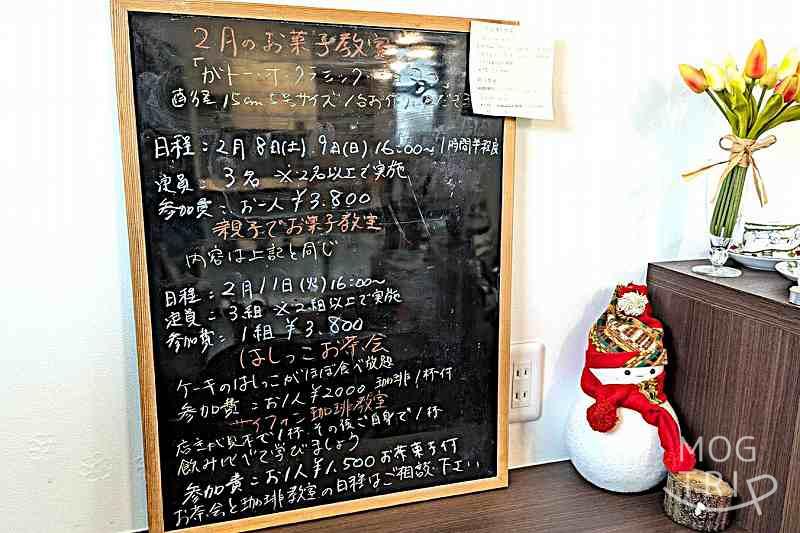 2月のお菓子教室
「ガトー・オ・クラシック
直径15cm 5号サイズ 1台お作り
日程：2月8日(土)、9日(日) 16:00~1時間半程度
定員：3名 ※2名以上で実施
参加費：お一人¥3.800
親子でお菓子教室
内容は上記と同じ
日程：2月11日(火)16:00~
定員：3組 ※2組以上で実施
参加費：1組¥3.800
はしっこお茶会
ケーキのはしっこがほぼ食べ放題
参加費：お1人¥2000 珈琲1杯付
サイフォン珈琲教室
店主が見本で1杯、その後ご自身で1杯
飲み比べで学びましょう
参加費：お1人¥1.500お茶菓子付
お茶会と珈琲教室の日程はご相談下さい
MOG
TRIP